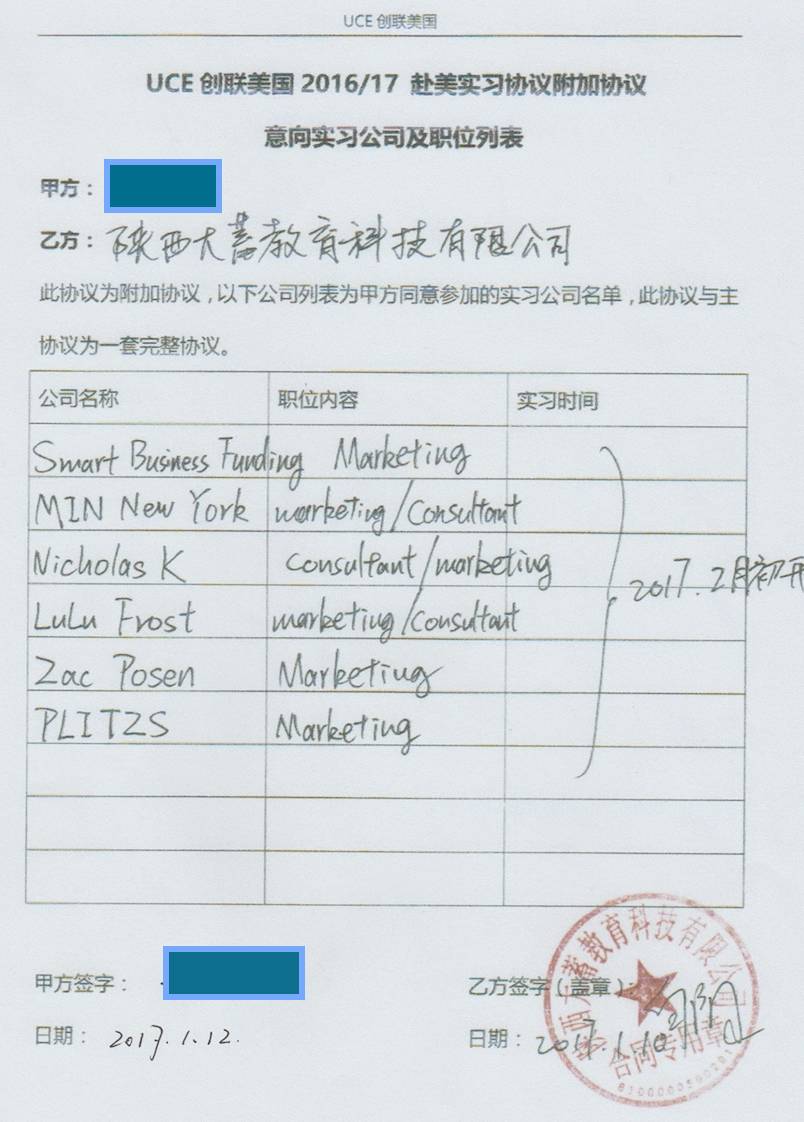 UCE 创联美国
UCE 创联美国 2016/17 赴美实习协议附加协议
意向实习公司及职位列表
甲方：
乙方：陕西大蓄教育科技有限公司
此协议为附加协议，以下公司列表为甲方同意参加的实习公司名单，此协议与主
协议为一套完整协议。
公司名称 职位内容 实习时间
Smart Business Funding Marketing
MIN New York marketing/Consultant
Nicholas K Consultant/marketing
2017.2月初开
LuLu Frost marketing/Consultant
Zac Posen Marketing
PLITZS Marketing
陕西大蓄教育科技有限公司
甲方签字： 乙方签字（盖章）：
日期：2017.1.12. 日期：2017.1.10
合同专用章